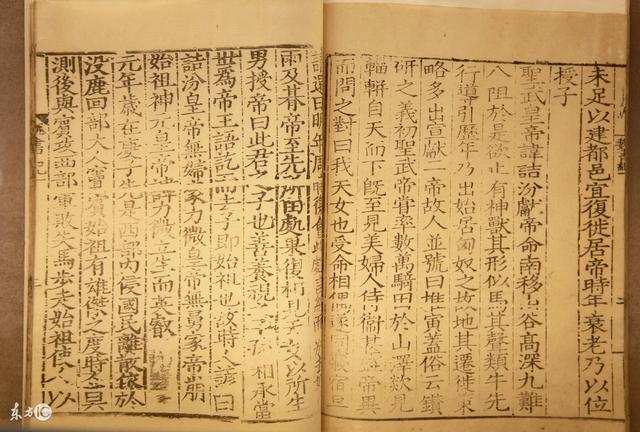 未足以建都邑宜復徙居帝時年衰老乃以位
授子
聖武皇帝諱詰汾獻帝命南移山谷高深九難
八阻於是欲止有神獸其形似馬其聲類牛先
行導引歷年乃出始居匈奴之故地其遷徙策
略多出宣獻二帝故人並號曰推寅蓋俗云鑽
研之義初聖武帝嘗率數萬騎田於山澤欻見
輜軿自天而下既至見美婦人侍衛甚盛帝異
而問之對曰我天女也受命相偶遂同寢宿旦
請還曰明年周時復會此處言終而
雨及朞帝至先所田處果復相見天女以所生
男授帝曰此君之子也善養視之子孫相承當
世爲帝王語訖而去子即始祖也故時人諺曰
詰汾皇帝無婦家力微皇帝無舅家帝崩
始祖神元皇帝諱力微立生而英叡
元年歲在庚子先是西部內侵國民離散依於
没鹿回部大人竇賓始祖有雄傑之度時人莫
測後與竇賓攻西部軍敗失馬步走始祖使人以
東方IC